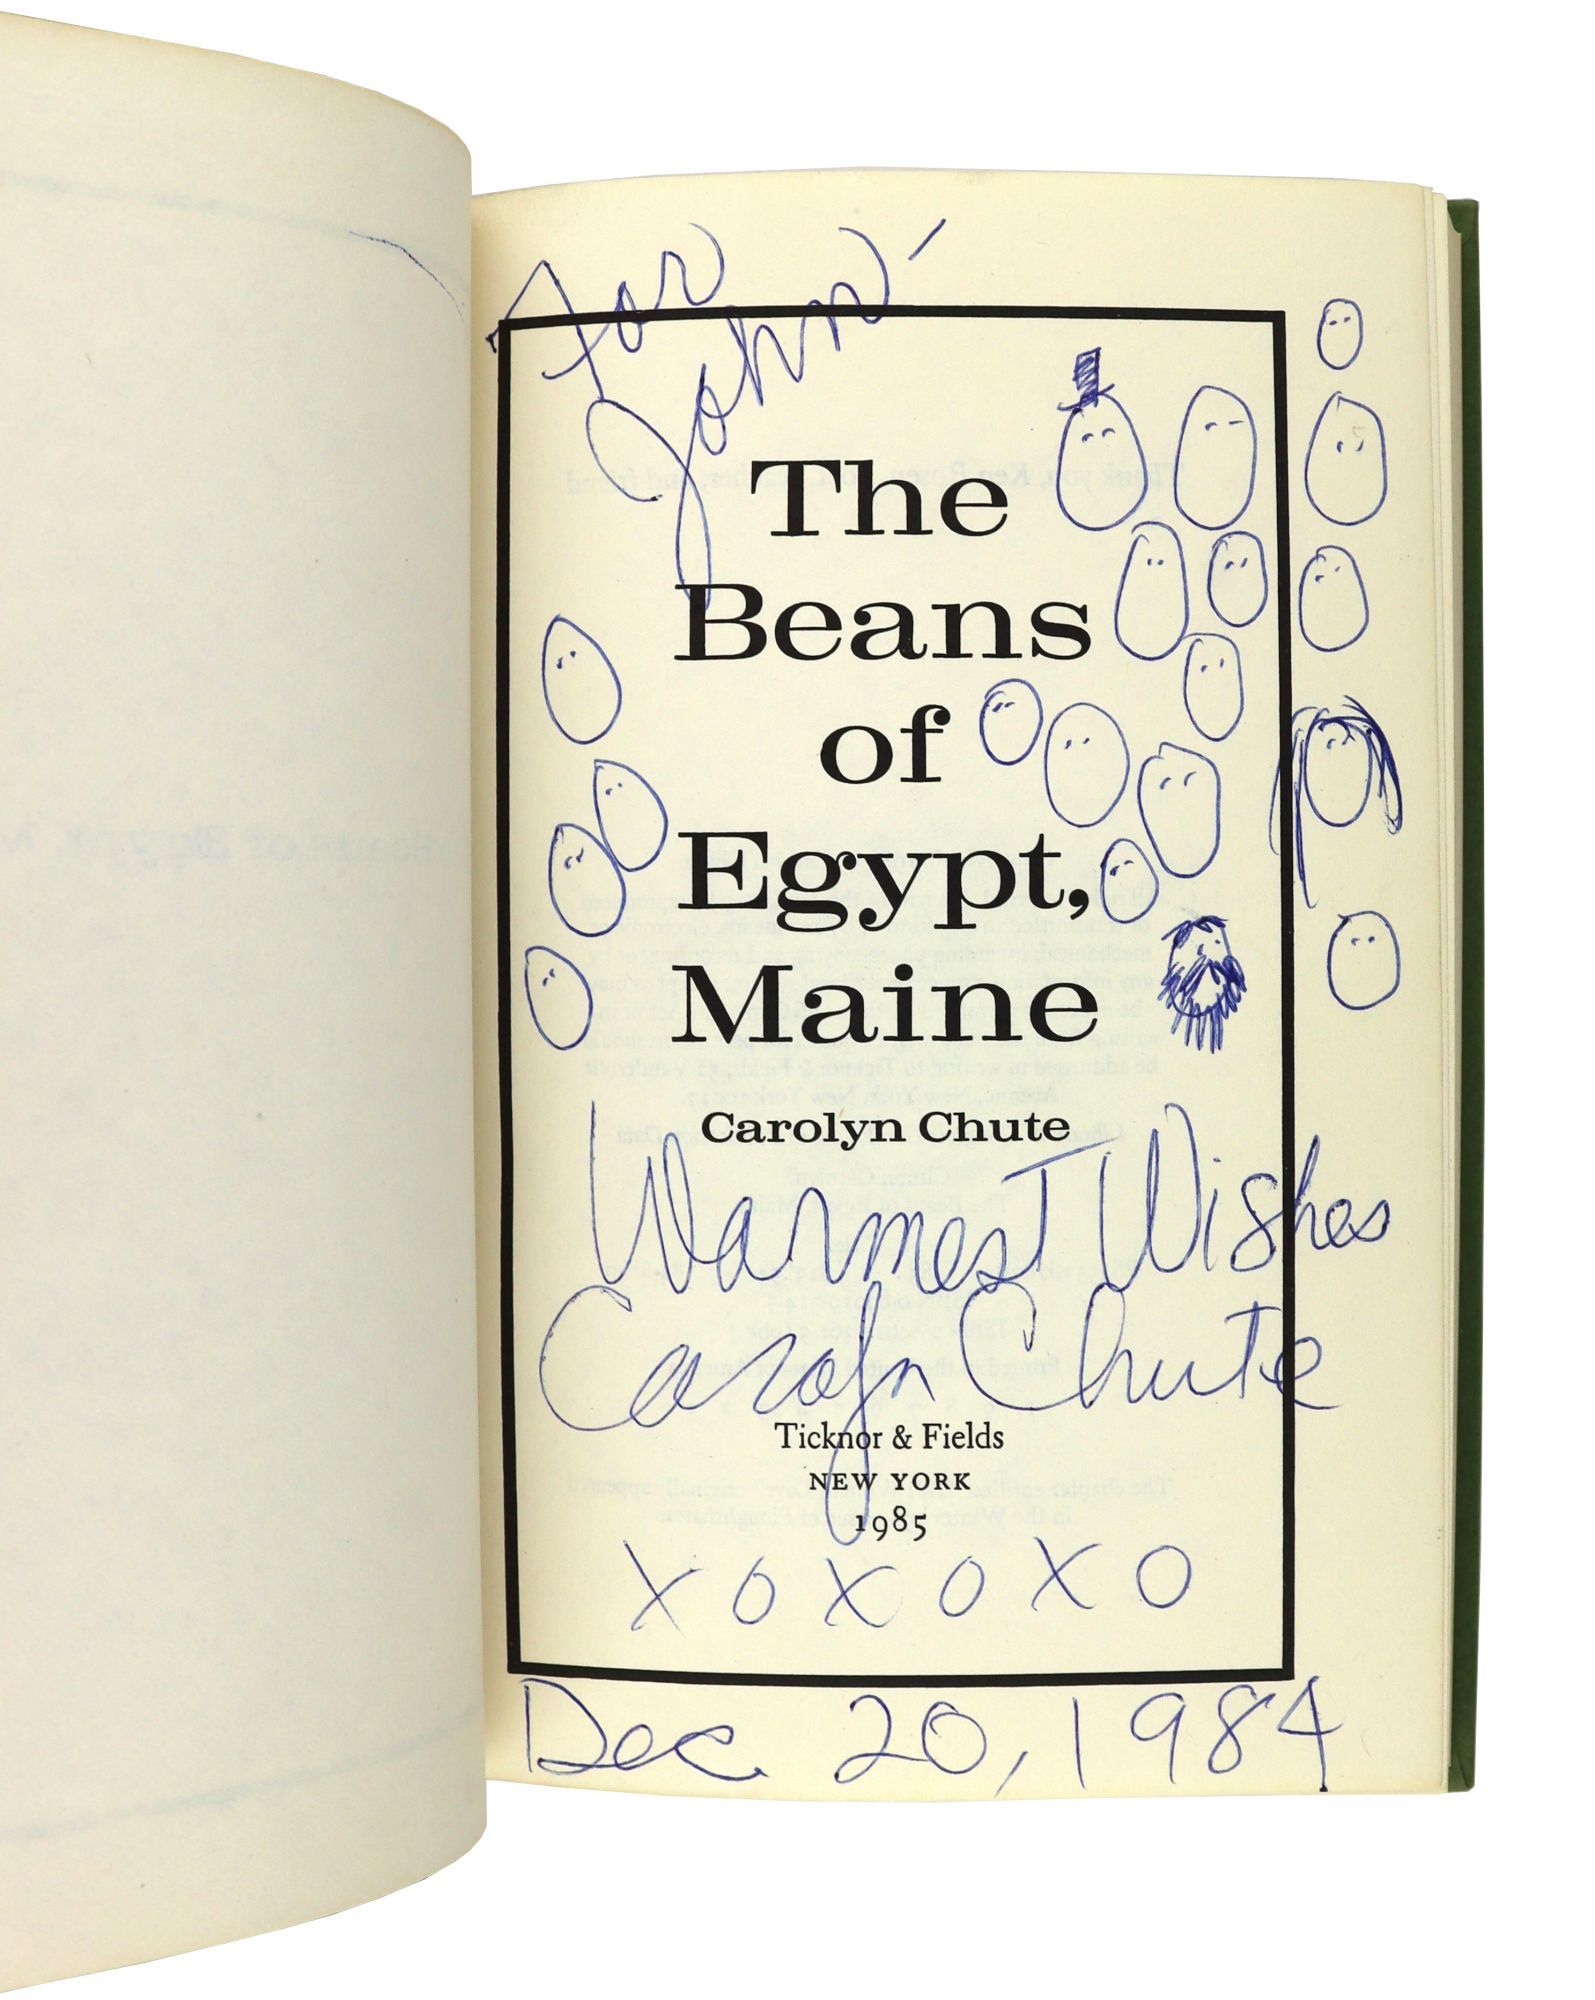 For
John -
The
Beans
of
Egypt,
Maine
Carolyn Chute
Warmest Wishes
Carolyn Chute
Ticknor & Fields
NEW YORK
1985
X O X O X O
Dec 20, 1984